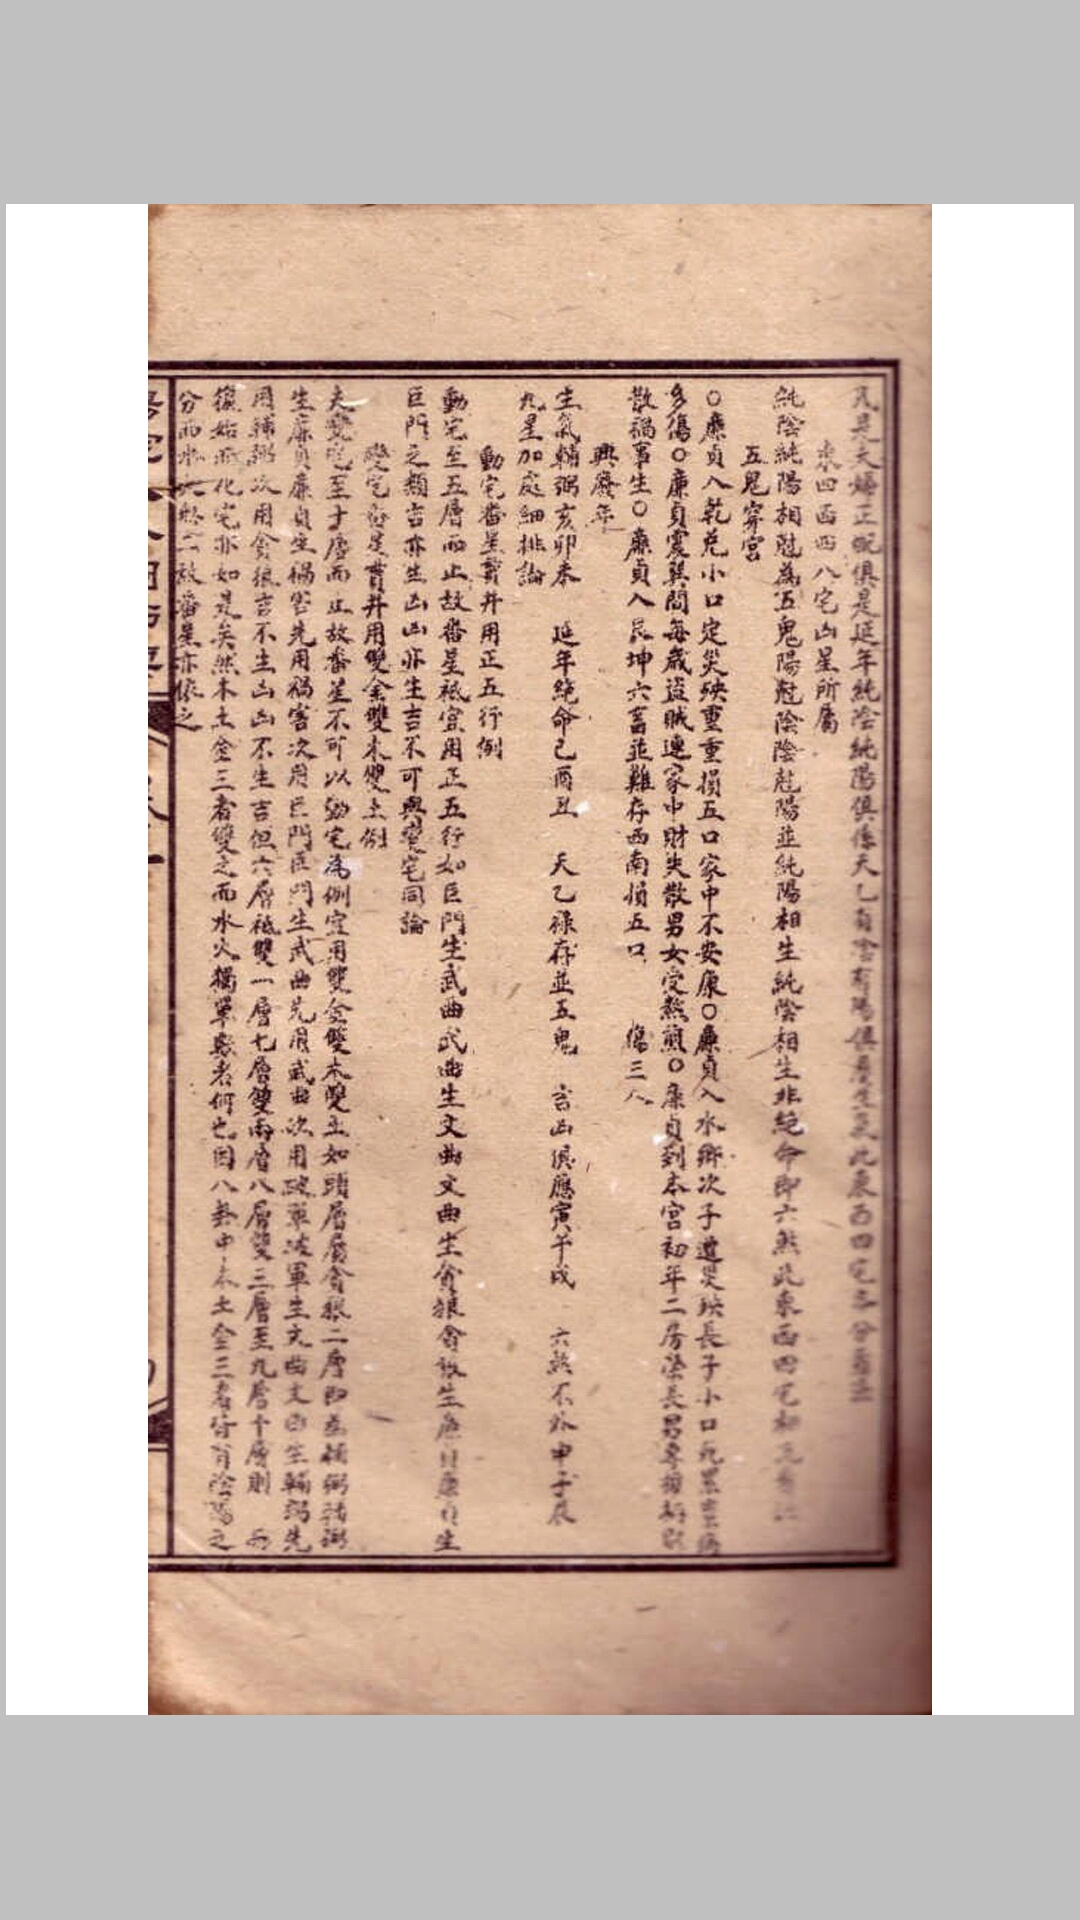 凡是夫婦正配俱是延年純陰純陽俱係天乙有陰有陽俱是生氣此東西四宅
東四西四八宅凶星所屬
純陰純陽相尅為五鬼陽尅陰陰尅陽並純陽相生純陰相生非絕命即六煞此東西四宅
五鬼穿宮
○廉貞入乾兌小口定災殃重重損五口家中不安康○廉貞入水鄉次子遭災殃長子小口
多傷○廉貞震巽間每歲盜賊連家中財失散男女受熬煎○廉貞到本宮初年二房榮長男
散禍事生○廉貞入艮坤六畜並難存西南損五口 傷三人
興廢年
生氣輔弼亥卯未 延年絕命己酉丑 天乙祿存並五鬼 吉凶俱應寅午戌 六煞不外申子辰
九星加處細排論
動宅番星貫井用正五行例
動宅至五層而止故番星祇宜用正五行如巨門生武曲武曲生文曲文曲生貪狼貪狼生廉貞廉貞生
巨門之類吉亦生凶凶亦生吉不可與變宅同論
變宅番星貫井用雙金雙木雙土例
夫變宅至十層而止故番星不可以動宅為例宜用雙金雙木雙土如頭層屬貪狼二層即為輔弼輔弼
生廉貞廉貞生禍害先用禍害次用巨門巨門生武曲先用武曲次用破軍破軍生文曲文曲生輔弼先
用輔弼次用貪狼吉不生凶凶不生吉但六層祇雙一層七層雙兩層八層雙三層至九層十層則 而
復始而化宅亦如是矣然木土金三者雙之而水火獨單數者何也因八卦中木土金三者皆有陰陽之
分而水火無二故番星亦依之